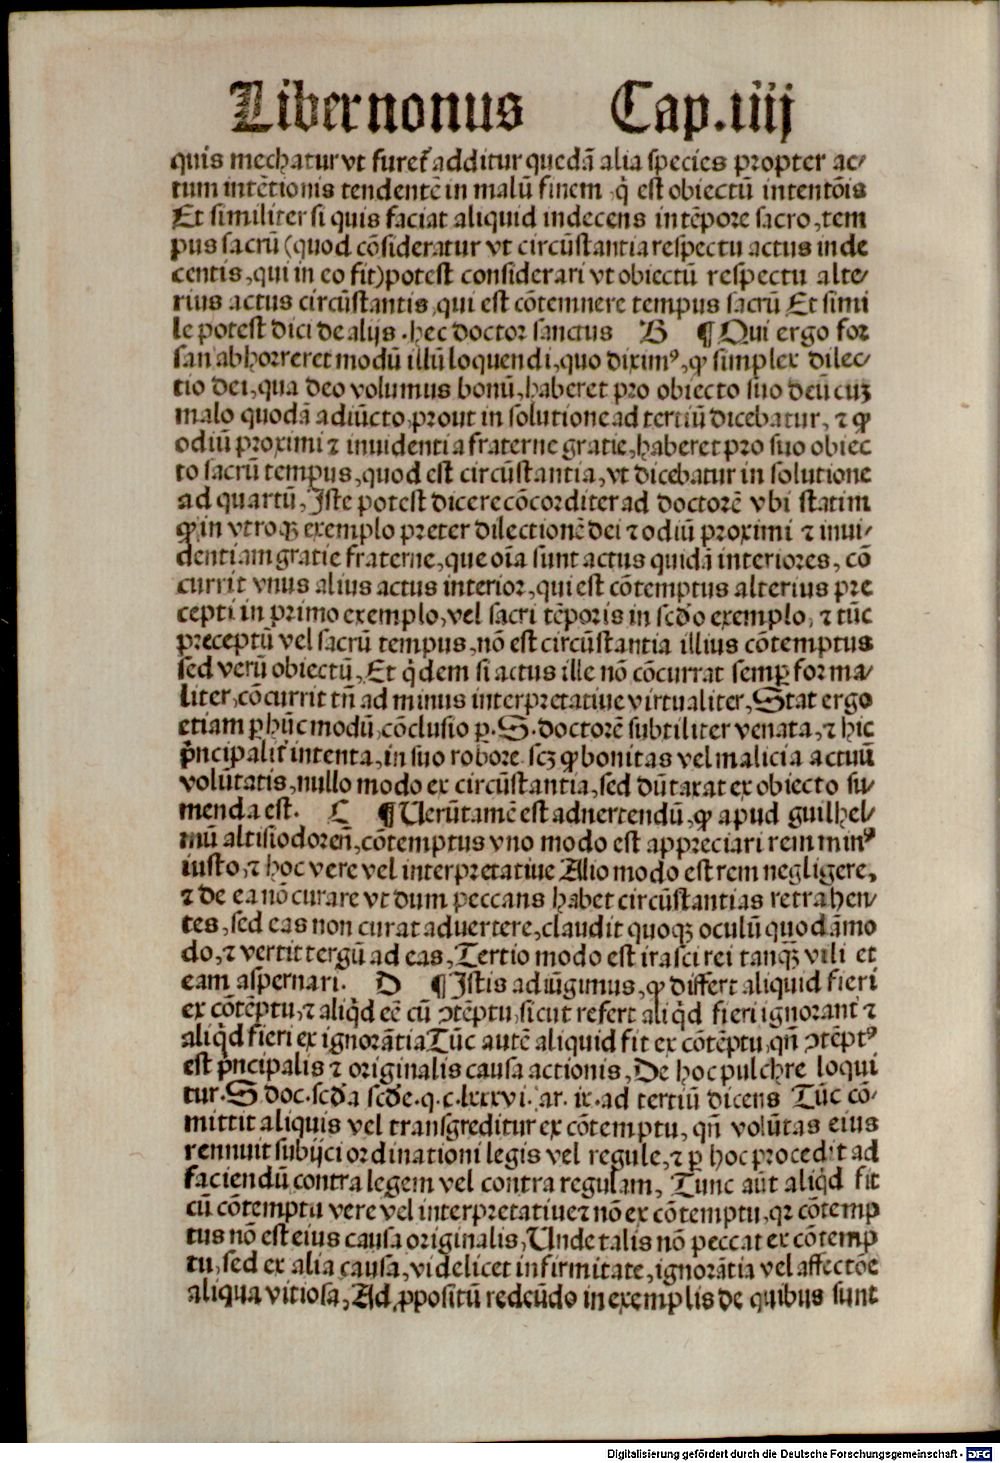 Liber nonus Cap. iiij
quis mechatur vt furet᷑ additur quedā alia species propter ac⸗
tum intētionis tendentē in malū finem, q̇ est obiectū intentōis
Et similiter si quis faciat aliquid indecens in tēpore sacro, tem
pus sacrū (quod cōsideratur vt circūstantia respectu actus inde
centis, qui in eo fit) potest considerari vt obiectū respectu alte⸗
rius actus circūstantis, qui est cōtemnere tempus sacrū Et simi
le potest dici de alijs. hec doctor sanctus B ¶ Qui ergo for
san abhorreret modū illū loquendi, quo dixim⁹, ꝙ simplex dilec⸗
tio dei, qua deo volumus bonū, haberet pro obiecto suo deū cuꝫ
malo quodā adiūcto, prout in solutione ad tertiū dicebatur, ⁊ ꝙ
odiū proximi ⁊ inuidentia fraterne gratie, haberet pro suo obiec
to sacrū tempus, quod est circūstantia, vt dicebatur in solutione
ad quartū, Iste potest dicere cōcorditer ad doctorē vbi statim
ꝙ in vtroqꝫ exemplo preter dilectionē dei ⁊ odiū proximi ⁊ inui⸗
dentiam gratie fraterne, que oīa sunt actus quidā interiores, cō
currit vnus alius actus interior, qui est cōtemptus alterius pre
cepti in primo exemplo, vel sacri tēporis in scďo exemplo, ⁊ tūc
preceptū vel sacrū tempus, nō est circūstantia illius cōtemptus
sed verū obiectū, Et q̇dem si actus ille nō cōcurrat semꝑ forma⸗
liter, cōcurrit tn̄ ad minus interpretatiue virtualiter, Stat ergo
etiam ꝑ hūc modū, cōclusio ꝑ. S. doctorē subtiliter venata, ⁊ hic
pͥncipalit᷑ intenta, in suo robore sꝫ ꝙ bonitas vel malicia actuū
volūtatis, nullo modo ex circūstantia, sed dūtaxat ex obiecto su⸗
menda est. C ¶ Uerūtamē est aduertendū, ꝙ apud guilhel⸗
mū altisiodoreñ, cōtemptus vno modo est appreciari rem min⁹
iusto, ⁊ hoc vere vel interpretatiue Alio modo est rem negligere,
⁊ de ea nō curare vt dum peccans habet circūstantias retrahen⸗
tes, sed eas non curat aduertere, claudit quoqꝫ oculū quodāmo
do, ⁊ vertit tergū ad eas, Tertio modo est irasci rei tanqꝫ vili et
eam aspernari. D ¶ Istis adiūgimus, ꝙ differt aliquid fieri
ex cōtēptu, ⁊ aliq̇d eē cū ↄtēptu, sicut refert aliq̇d fieri ignorant᷑ ⁊
aliq̇d fieri ex ignorātia Tūc autē aliquid fit ex cōtēptu, qn̄ ↄtēpt⁹
est pͥncipalis ⁊ originalis causa actionis, De hoc pulchre loqui
tur. S. doc. scďa scďe. q. c. lxxxvi. ar. ix. ad tertiū dicens Tūc cō⸗
mittit aliquis vel transgreditur ex cōtemptu, qn̄ volūtas eius
rennuit subijci ordinationi legis vel regule, ⁊ ꝑ hoc procedit ad
faciendū contra legem vel contra regulam, Tunc aūt aliq̇d fit
cū cōtemptu vere vel interpretatiue ⁊ nō ex cōtemptu, qꝛ cōtemp
tus nō est eius causa originalis, Unde talis nō peccat ex cōtemp
tu, sed ex alia causa, videlicet infirmitate, ignorātia vel affectōe
aliqua vitiosa, Ad ꝓpositū redeūdo in exemplis de quibus sunt
Digitalisierung gefördert durch die Deutsche Forschungsgemeinschaft - DFG